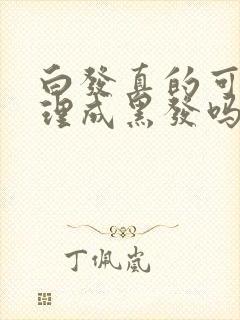 白發真的可
理成黑發嗎
丁佩嵐